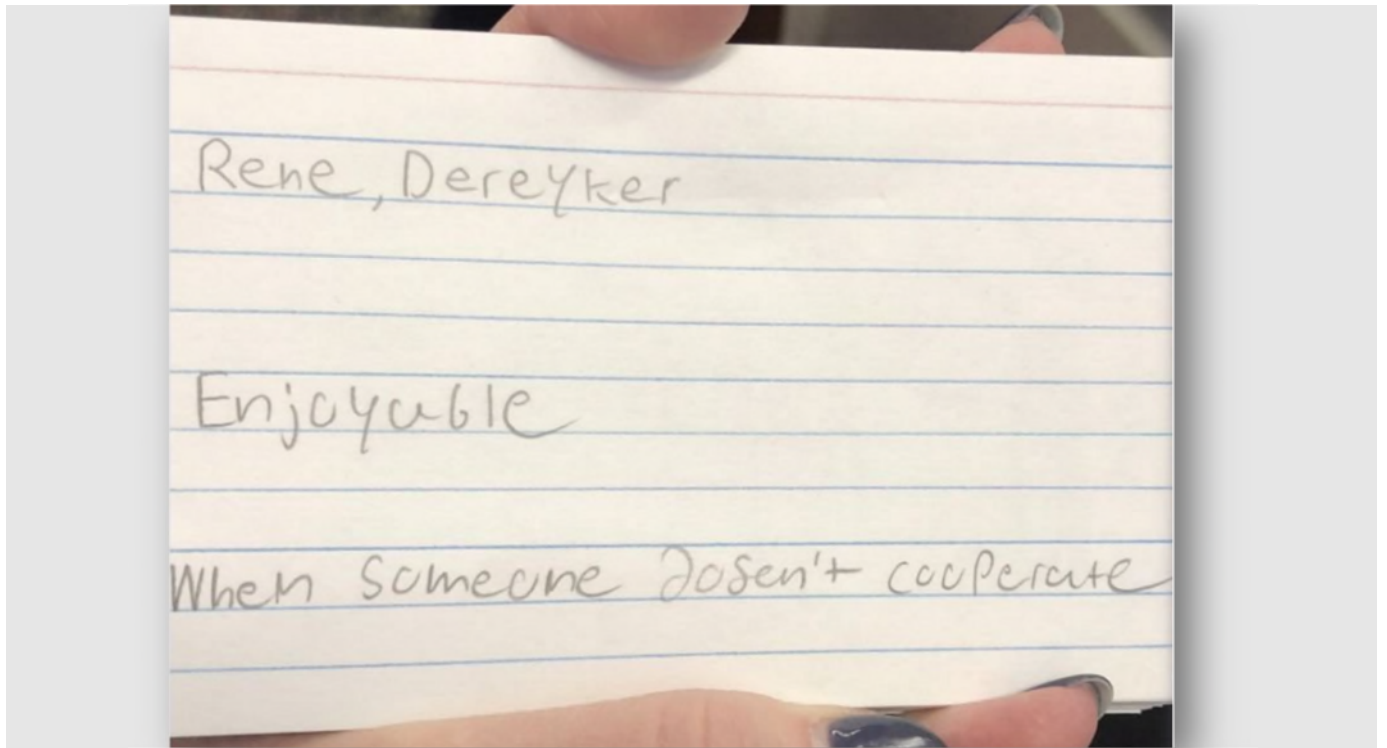 Rene, Dereyker
Enjoyable
When someone dosen't cooperate